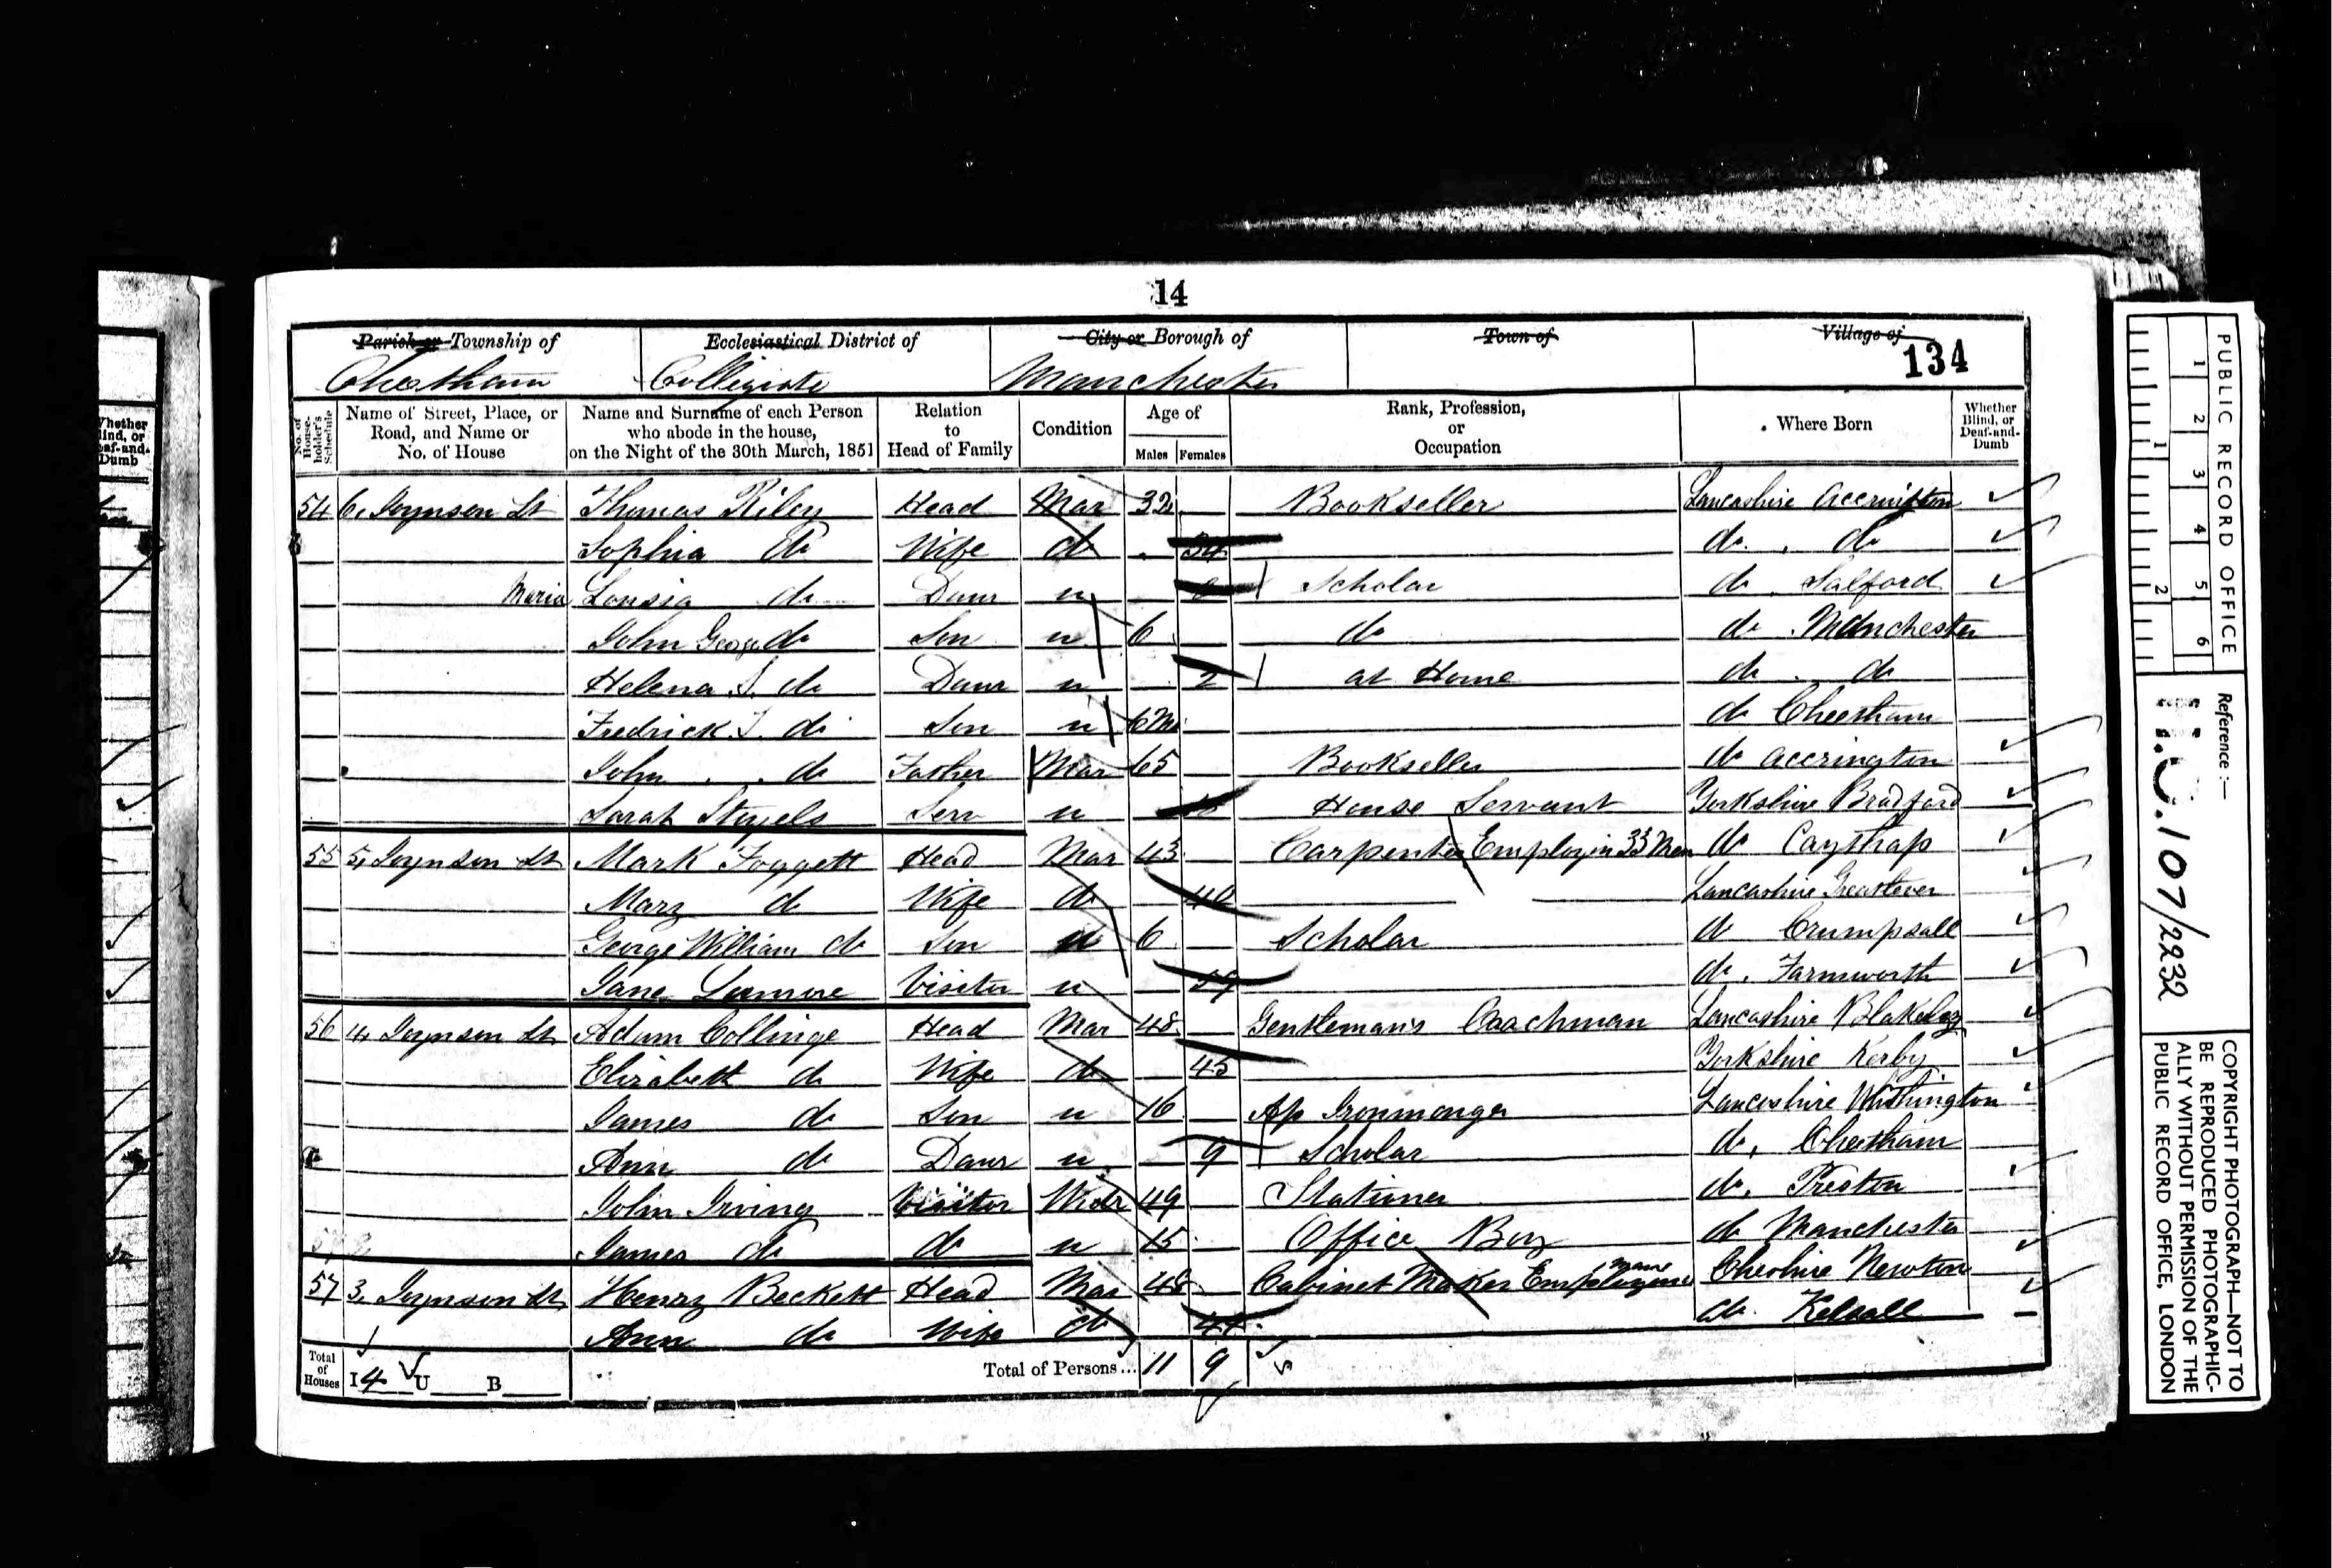 14
Parish or Township of Ecclesiastical District of City or Borough of Town of Village of
134
Cheetham Collegiate Manchester
No. of House-holder's Schedule Name of Street, Place, or Road, and Name or No. of House Name and Surname of each Person who abode in the house, on the Night of the 30th March, 1851 Relation to Head of Family Condition Age of Males Females Rank, Profession, or Occupation Where Born Whether Blind, or Deaf-and-Dumb
54 6, Joynson St Thomas Riley Head Mar 32 Bookseller Lancashire Accrington
Sophia do Wife do 34 do do
Maria Lousia do Daur u Scholar do Salford
John George do Son u 6 do do Manchester
Helena S. do Daur u 2 at Home do do
Fredrick T. do Son u 6 Mo do Cheetham
John do Father Mar 65 Bookseller do Accrington
Sarah Serv u House Servant Yorkshire Bradford
55 5, Joynson St Mark Foggett Head Mar 43 Carpenter Employin 33 Men do
Mary do Wife do 40 Lancashire
George William do Son u 6 Scholar do Crumpsall
Jane Visitor u 39 do Farnworth
56 4, Joynson St Adam Collinge Head Mar 48 Gentleman's Coachman Lancashire Blakeley
Elizabeth do Wife do 45 Yorkshire Kerby
James do Son u 16 Ap Ironmonger Lancashire Withington
Ann do Daur u 9 Scholar do, Cheetham
John Irving Visitor Widr 49 Stationer do, Preston
James do do u 15 Office Boy do Manchester
57 3, Joynson St Henry Beckett Head Mar 48 Cabinet Maker Cheshire Newton
Ann do Wife do 44 do Kelsall
Total of Houses I 4 U B Total of Persons... 11 9
Whether Blind, or Deaf-and-Dumb
PUBLIC RECORD OFFICE
1 2 3 4 5 6
1 2
Reference :—
H.O. 107/2232
COPYRIGHT PHOTOGRAPH—NOT TO BE REPRODUCED PHOTOGRAPHIC-ALLY WITHOUT PERMISSION OF THE PUBLIC RECORD OFFICE, LONDON